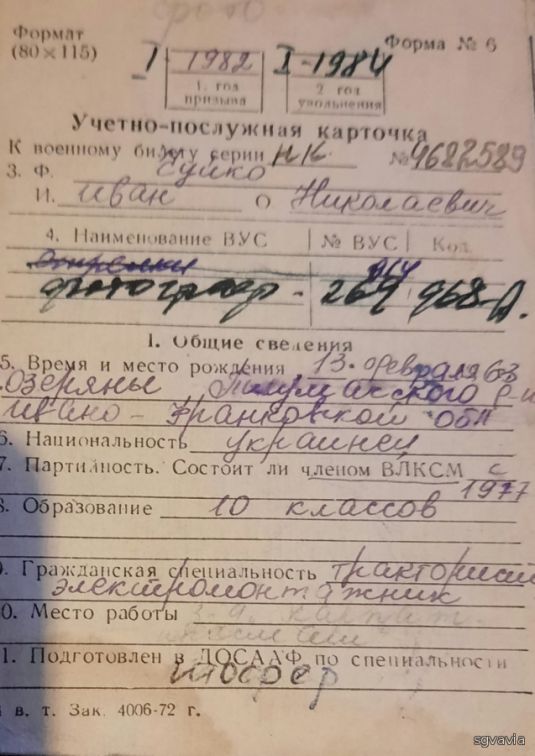 фото
Формат
(80×115)
Форма № 6
I - 1982
1. год
призыва
I-1984
2 год
увольнения
Учетно-послужная карточка
К военному билету серии НК № 9682589
3. Ф.
И. Иван О Николаевич
4. Наименование ВУС № ВУС Код
фотограф - 269 968-А.
1. Общие сведения
5. Время и место рождения 13. февраля 63
Озеряны р-н
ивано-Франковской обл
6. Национальность украинец
7. Партийность. Состоит ли членом ВЛКСМ с
1977
8. Образование 10 классов
9. Гражданская специальность тракторист
электромонтажник
0. Место работы
1. Подготовлен в ДОСААФ по специальности
шофер
в. т. Зак. 4006-72 г.
sgvavia